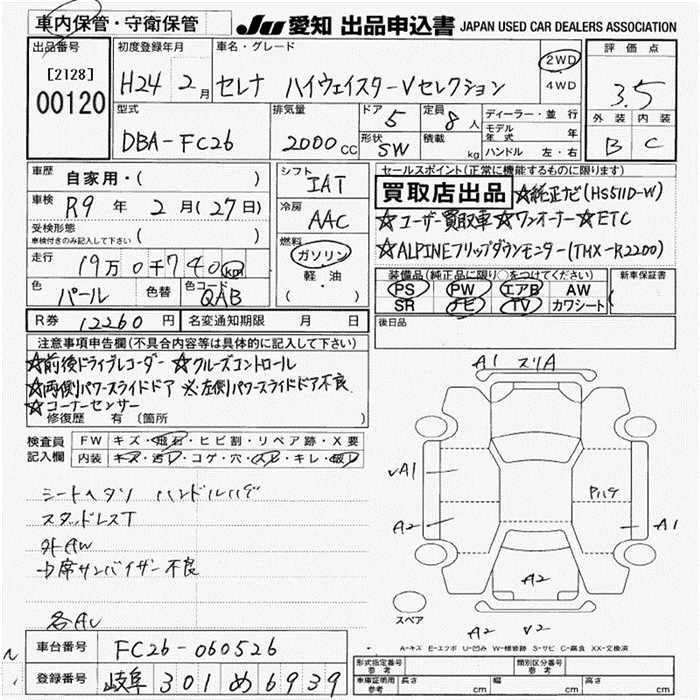 車内保管・守衛保管
JU 愛知 出品申込書 JAPAN USED CAR DEALERS ASSOCIATION
出品番号 初度登録年月 車名・グレード 評価点
[2128] H24 2月 セレナ ハイウェイスターVセレクション 2WD ・ 4WD 3.5
00120
型式 排気量 ドア 5 定員 8人 ディーラー・並行 外装 内装
DBA-FC26 2000cc 形状 SW 積載 kg モデル年式 年 B C
ハンドル 左・右
車歴 自家用・( )
シフト IAT
セールスポイント(正常に機能するものに限ります)
車検 R9年 2月(27日)
冷房 AAC
買取店出品 ☆純正ナビ(HS511D-W)
☆ユーザー買取車☆ワンオーナー☆ETC
☆ALPINEフリップダウンモニター(TMX-R2200)
受検形態
車検付きのみ記入して下さい ( )
燃料 ガソリン
軽・油
( )
走行 19万0千740km
装備品(純正品に限り○をつけてください) 新車保証書
PS PW エアB AW
SR ナビ TV カワシート (
色 パール 色替 色コード QAB
R券 12260円 名変通知期限 月 日
後日品
注意事項申告欄(不具合内容等は具体的に記入して下さい)
☆前後ドライブレコーダー ☆クルーズコントロール
☆両側パワースライドドア ※左側パワースライドドア不良
☆コーナーセンサー
修復歴 有 (箇所
検査員記入欄 FW キズ・飛石・ヒビ割・リペア跡・X要
内装 キズ・汚レ・コゲ・穴・スレ・キレ・破レ
シートヘタリ ハンドルハゲ
スタッドレスT
社外AW
中席サンバイザー不良
各AU
A1 スリA
A1
A2
Pハゲ
A1
A2
スペア
A2 V2
A-キズ E-エクボ U-凹み W-補修跡 S-サビ C-腐食 XX-交換済
車台番号 FC26-060526
登録番号 岐阜 301 め 6939
形式指定番号 参考 類別区分番号 参考
車庫証明用 参考 長さ cm 幅 cm 高さ cm